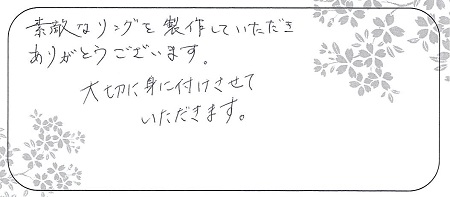 素敵なリングを製作していただき
ありがとうございます。
大切に身に付けさせて
いただきます。